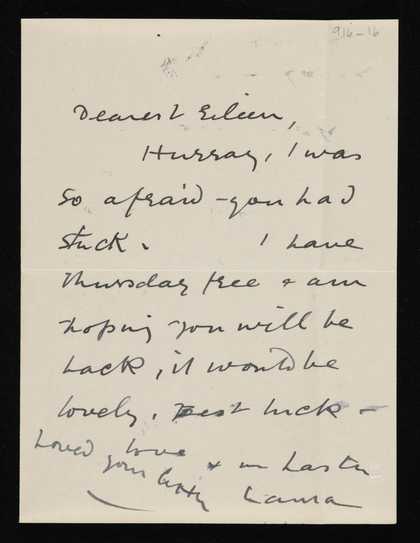 916-16
Dearest Eileen,
Hurray, I was
so afraid - you had
stuck. I have
Thursday free & am
hoping you will be
back, it would be
lovely. Best luck -
love & in haste
Laura
Loved your letter